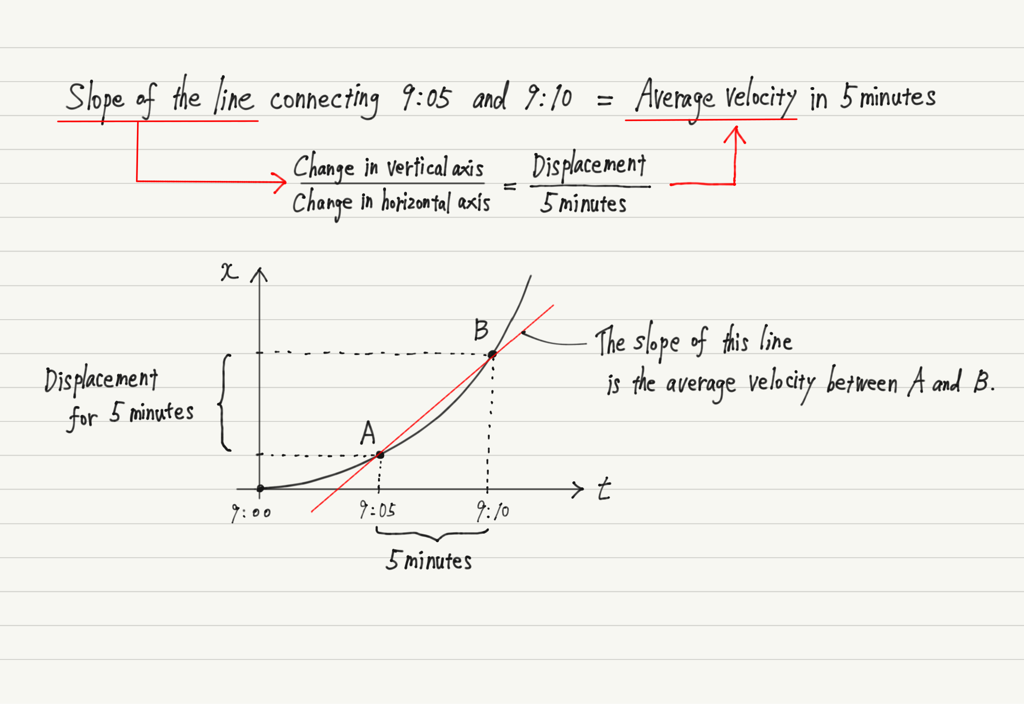 Slope of the line connecting 9:05 and 9:10 = Average velocity in 5 minutes
Change in vertical axis
Change in horizontal axis
=
Displacement
5 minutes
x
B
The slope of this line
is the average velocity between A and B.
Displacement
for 5 minutes
A
t
9:00
9:05
9:10
5 minutes